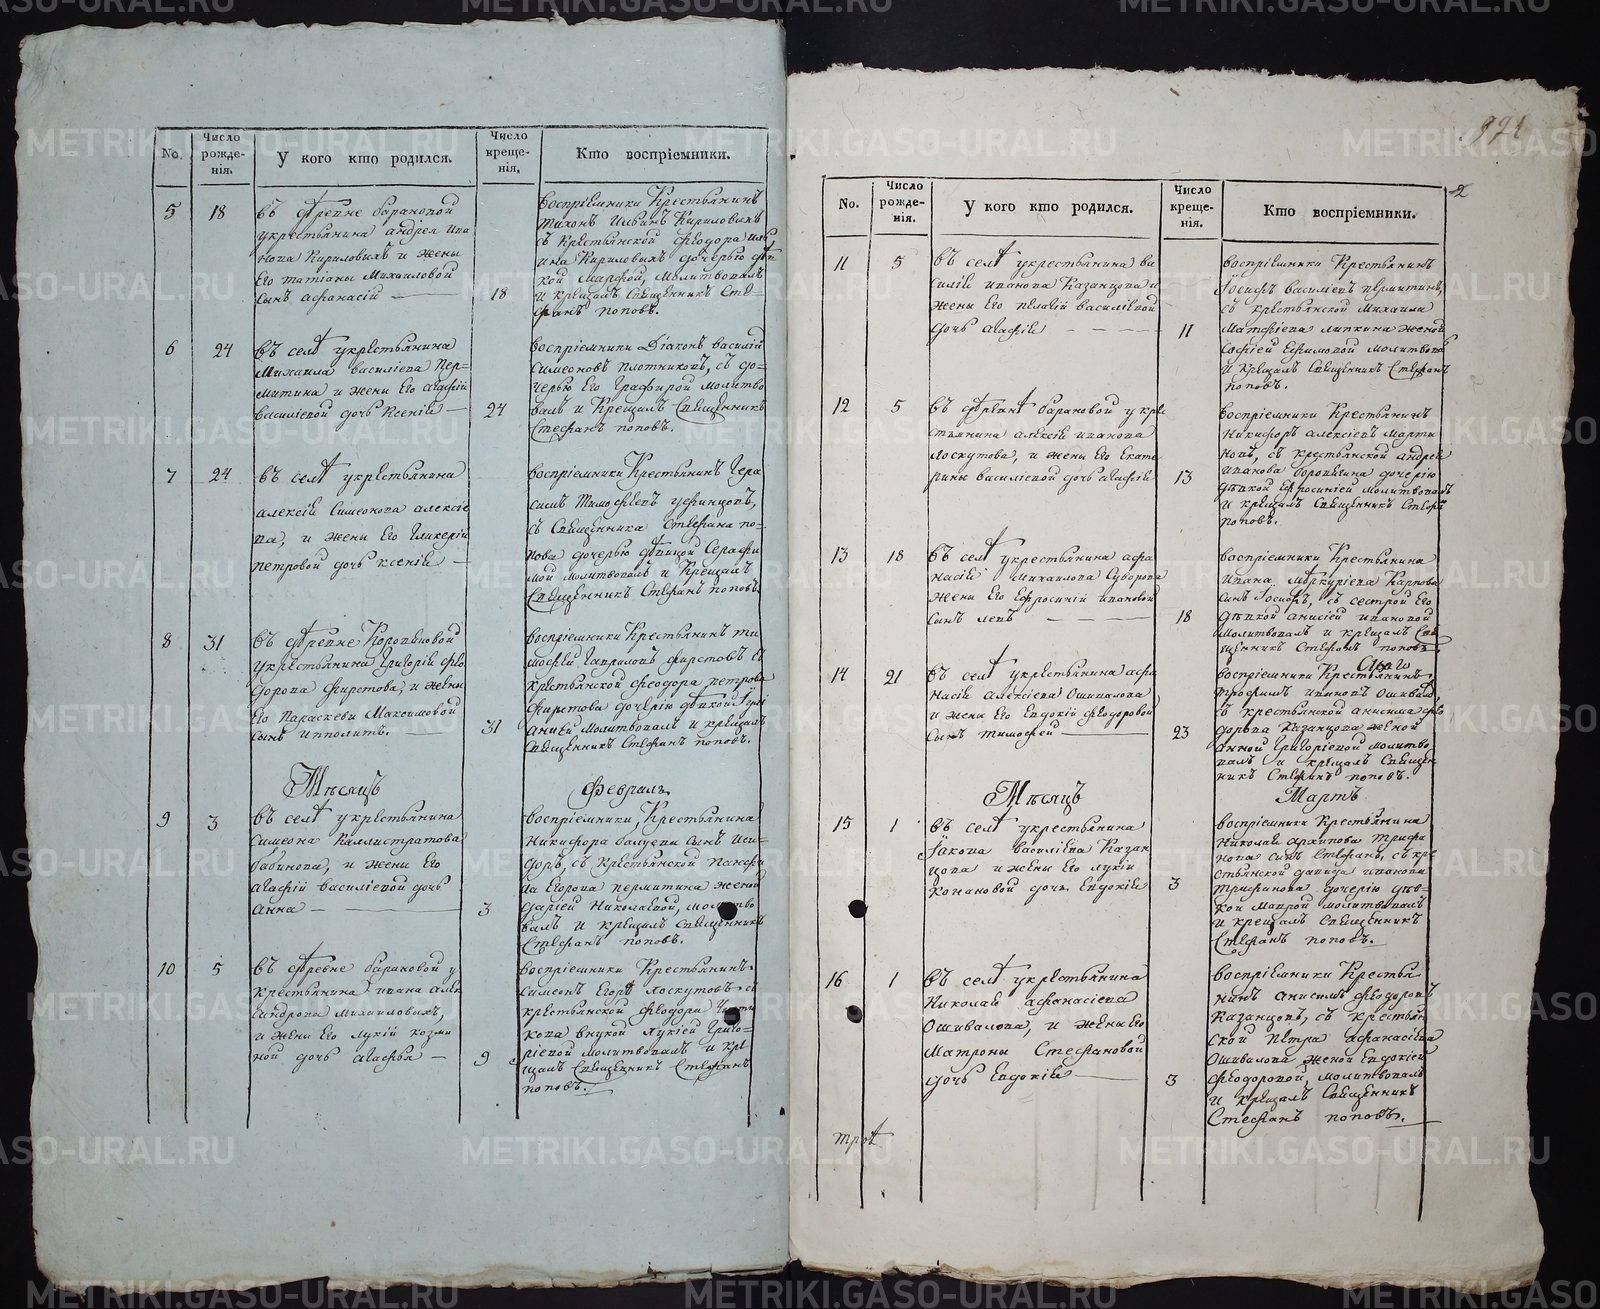 No.
Число рожде-нія.
У кого кто родился.
Число креще-нія.
Кто воспріемники.
5
18
въ деревне барановой
укрестьянина андрея ива
нова Кириловыхъ и жены
Его татіаны Михаиловой
сынъ афанасій
18
воспріемники Крестьянинъ
тихонъ Ильинъ Кириловыхъ
съ Крестьянской феодора иль
ина Кириловыхъ дочерью дѣв
кой Марфой, молитвовалъ
и крещалъ Священникъ Сте=
фанъ поповъ.
6
24
въ селѣ укрестьянина
Михаила василіева Пер=
митина и жены Его агафіи
василіевой дочь Ксенія
24
воспріемники Діаконъ василій
симеоновъ плотниковъ, съ до=
черью Его Глафирой молитво
валъ и Крещалъ Священникъ
Стефанъ поповъ.
7
24
въ селѣ укрестьянина
алексія Симеонова алексіе
ва, и жены Его Гликеріи
петровой дочь ксенія
воспріемники Крестьянинъ Гера
симъ Тимофеевъ уфинцовъ,
съ Священника Стефана по=
пова дочерью дѣвицой Серафи
мой молитвовалъ и Крещалъ
Священникъ Стефанъ поповъ.
8
31
въ деревне
укрестьянина Григорія фео
дорова фирстова, и жены
Его Параскевы Максимовой
сынъ ипполитъ.
31
воспріемники Крестьянинъ ти
мофей Гавриловъ фирстовъ съ
крестьянской феодора петрова
фирстова дочерію дѣвкой
молитвовалъ и крещалъ
Священникъ Стефанъ поповъ.
Мѣсяцъ
Февраль
9
3
въ селѣ укрестьянина
симеона Каллистратова
бабинова, и жены Его
агафіи василіевой дочь
анна
3
воспріемники, Крестьянина
Никифора балуева сынъ иси=
доръ, съ Крестьянской Панфи
ла Егорова пермитина женой
даріей Николаевой, молитво
валъ и крещалъ Священникъ
Стефанъ поповъ.
10
5
въ деревне барановой у
крестьянина ивана алек
сандрова Михаиловыхъ,
и жены Его лукіи козми
ной дочь агафья
9
воспріемники Крестьянинъ
симеонъ Егоровъ лоскутовъ съ
крестьянской феодора
кова внукой лукіей Григо=
ріевой молитвовалъ и кре
щалъ Священникъ Стефанъ
поповъ.
921
2
No.
Число рожде-нія.
У кого кто родился.
Число креще-нія.
Кто воспріемники.
11
5
въ селѣ укрестьянина ва
силія иванова Казанцова и
жены Его пелагіи василіевой
дочь агафія
11
воспріемники Крестьянинъ
Іосифъ василіевъ пермитинъ,
съ крестьянской Михаила
Матфіева липкина женой
софіей Ефимовой молитвовалъ
и крещалъ Священникъ Стефанъ
поповъ.
12
5
въ деревнѣ барановой у кре
стьянина алексія иванова
лоскутова, и жены Его Екате
рины василіевой дочь агафія
13
воспріемники Крестьянинъ
Никифоръ алексіевъ марти
новъ, съ крестьянской андрея
иванова дочерію
дѣвкой Ефросиніей молитвовалъ
и крещалъ Священникъ Стефанъ
поповъ.
13
18
въ селѣ укрестьянина афа
насія Михаилова Суворова
жены Его Ефросиніи ивановой
сынъ левъ
18
воспріемники Крестьянина
ивана Меркуріева Карпова
сынъ Іосифъ, съ сестрой Его
дѣвкой анисіей ивановой
молитвовалъ и крещалъ Свя
щенникъ Стефанъ поповъ
14
21
въ селѣ укрестьянина афа
насія алексіева Ошивалова
и жены Его Евдокіи феодоровой
сынъ тимофей
23
воспріемники Крестьянинъ
трофимъ ивановъ Ошиваловъ
съ крестьянской анисима фео
дорова Казанцова женой
анной Григоріевой молитво
валъ и крещалъ Священ
никъ Стефанъ поповъ.
Мѣсяцъ
Мартъ
15
1
въ селѣ укрестьянина
Іакова василіева Казан
цова и жены Его лукіи
Конановой дочь Евдокія
3
воспріемники Крестьянина
Николая архипова трифа
нова сынъ Стефанъ, съ кре
стьянской давида иванова
трифанова дочерію дѣв=
кой маврой молитвовалъ
и крещалъ Священникъ
Стефанъ поповъ.
16
1
въ селѣ укрестьянина
Николая афанасіева
Ошивалова, и жены Его
Матроны Стефановой
дочь Евдокія
3
воспріемники Крестья
нинъ анисимъ феодоровъ
Казанцовъ, съ крестьян
ской петра афанасіева
Ошивалова женой Евдокіей
феодоровой, молитвовалъ
и крещалъ Священникъ
Стефанъ поповъ.